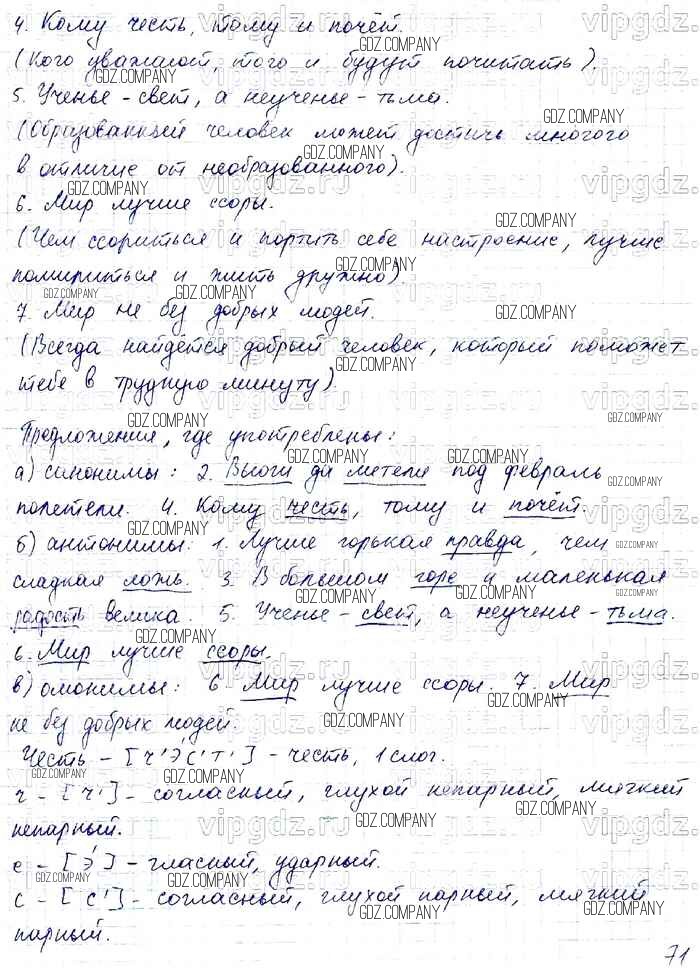 4. Кому честь, тому и почёт.
(Кого уважают, того и будут почитать).
5. Ученье - свет, а неученье - тьма.
(Образованный человек может достичь многого
в отличие от необразованного).
6. Мир лучше ссоры.
(Чем ссориться и портить себе настроение, лучше
помириться и жить дружно).
7. Мир не без добрых людей.
(Всегда найдётся добрый человек, который поможет
тебе в трудную минуту).
Предложения, где употреблены:
а) синонимы: 2. Вьюги да метели под февраль
полетели. 4. Кому честь, тому и почёт.
б) антонимы: 1. Лучше горькая правда, чем
сладкая ложь. 3. В большом горе и маленькая
радость велика. 5. Ученье - свет, а неученье - тьма.
6. Мир лучше ссоры.
в) омонимы: 6. Мир лучше ссоры. 7. Мир
не без добрых людей.
Честь - [ч'эс'т'] - честь, 1 слог.
ч - [ч'] - согласный, глухой непарный, мягкий
непарный.
е - [э́] - гласный, ударный.
с - [с'] - согласный, глухой парный, мягкий
парный.
71
vipgdz.ru
GDZ.COMPANY